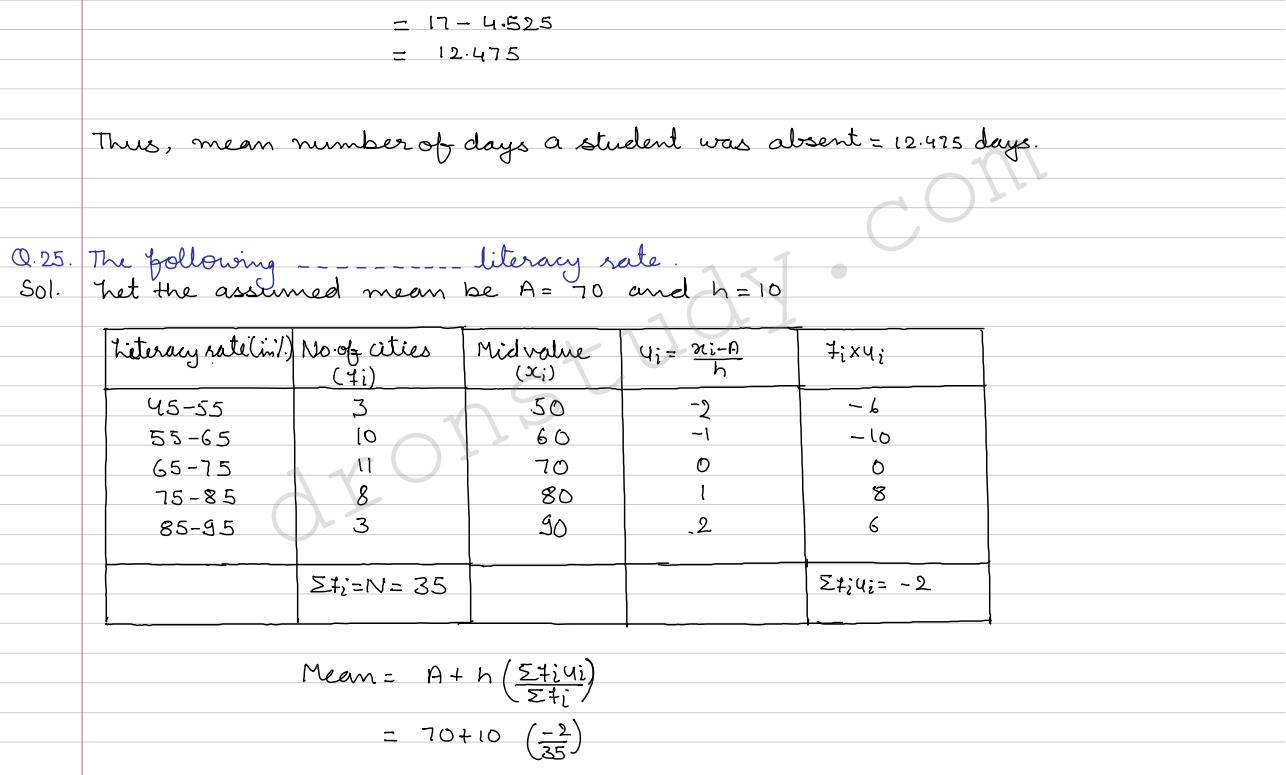 = 17 - 4.525
= 12.475
Thus, mean number of days a student was absent = 12.475 days.
Q.25. The following ---------- literacy rate.
Sol. Let the assumed mean be A = 70 and h = 10
Literacy rate (in %) No. of cities (fi) Mid value (xi) ui = (xi-A)/h fi×ui
45-55 3 50 -2 -6
55-65 10 60 -1 -10
65-75 11 70 0 0
75-85 8 80 1 8
85-95 3 90 2 6
Σfi = N = 35 Σfiui = -2
Mean = A + h (Σfiui/Σfi)
= 70 + 10 (-2/35)
dronstudy.com